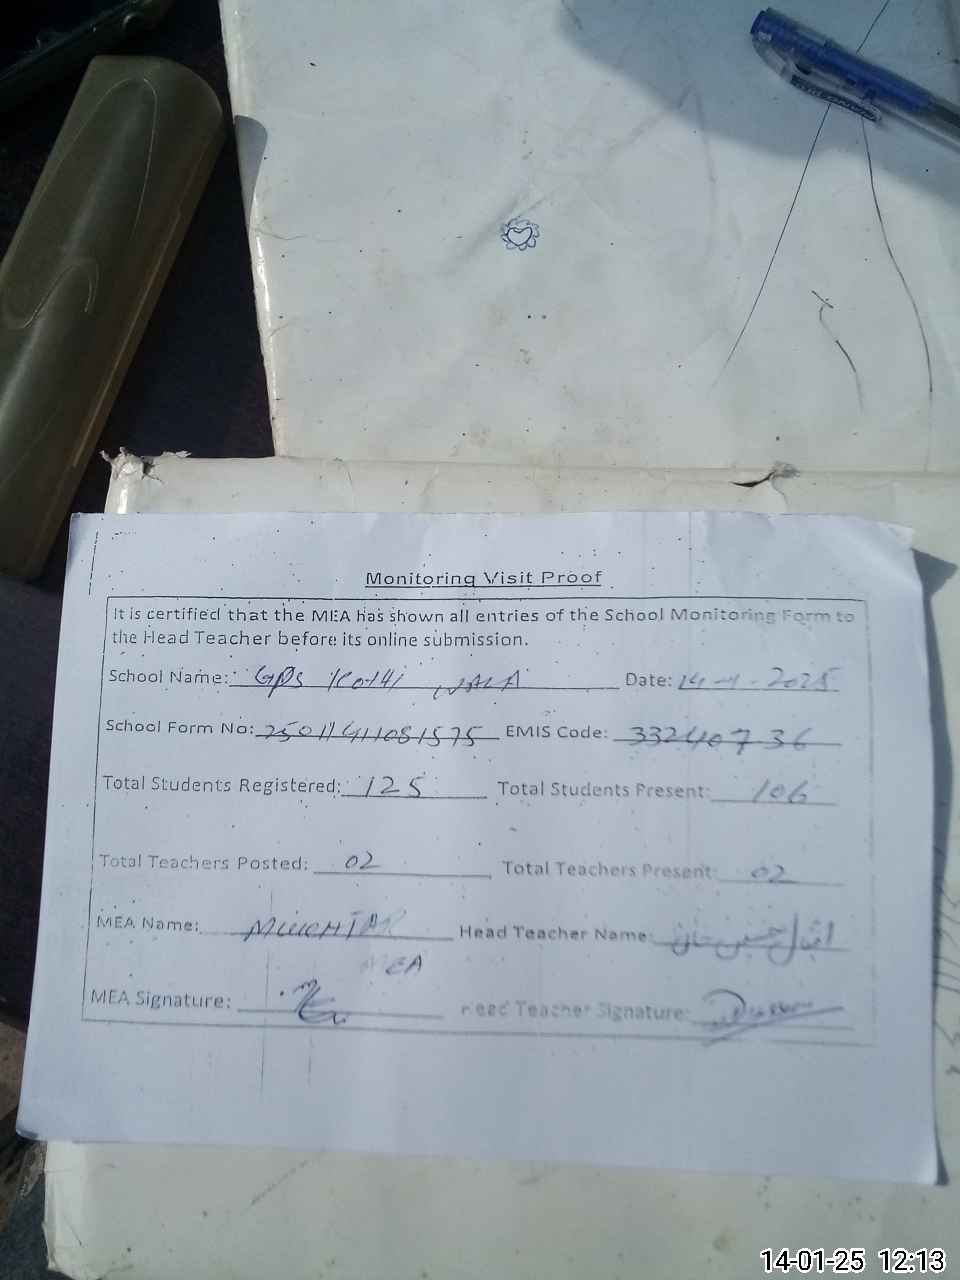 Monitoring Visit Proof
It is certified that the MEA has shown all entries of the School Monitoring Form to
the Head Teacher before its online submission.
School Name: GPS Kothi WALA Date: 14-1-2025
School Form No: 25011411081575 EMIS Code: 33240736
Total Students Registered: 125 Total Students Present: 106
Total Teachers Posted: 02 Total Teachers Present: 02
MEA Name: MUKHTAR Head Teacher Name: اقبال حسین خان
MEA
MEA Signature: Head Teacher Signature:
14-01-25 12:13